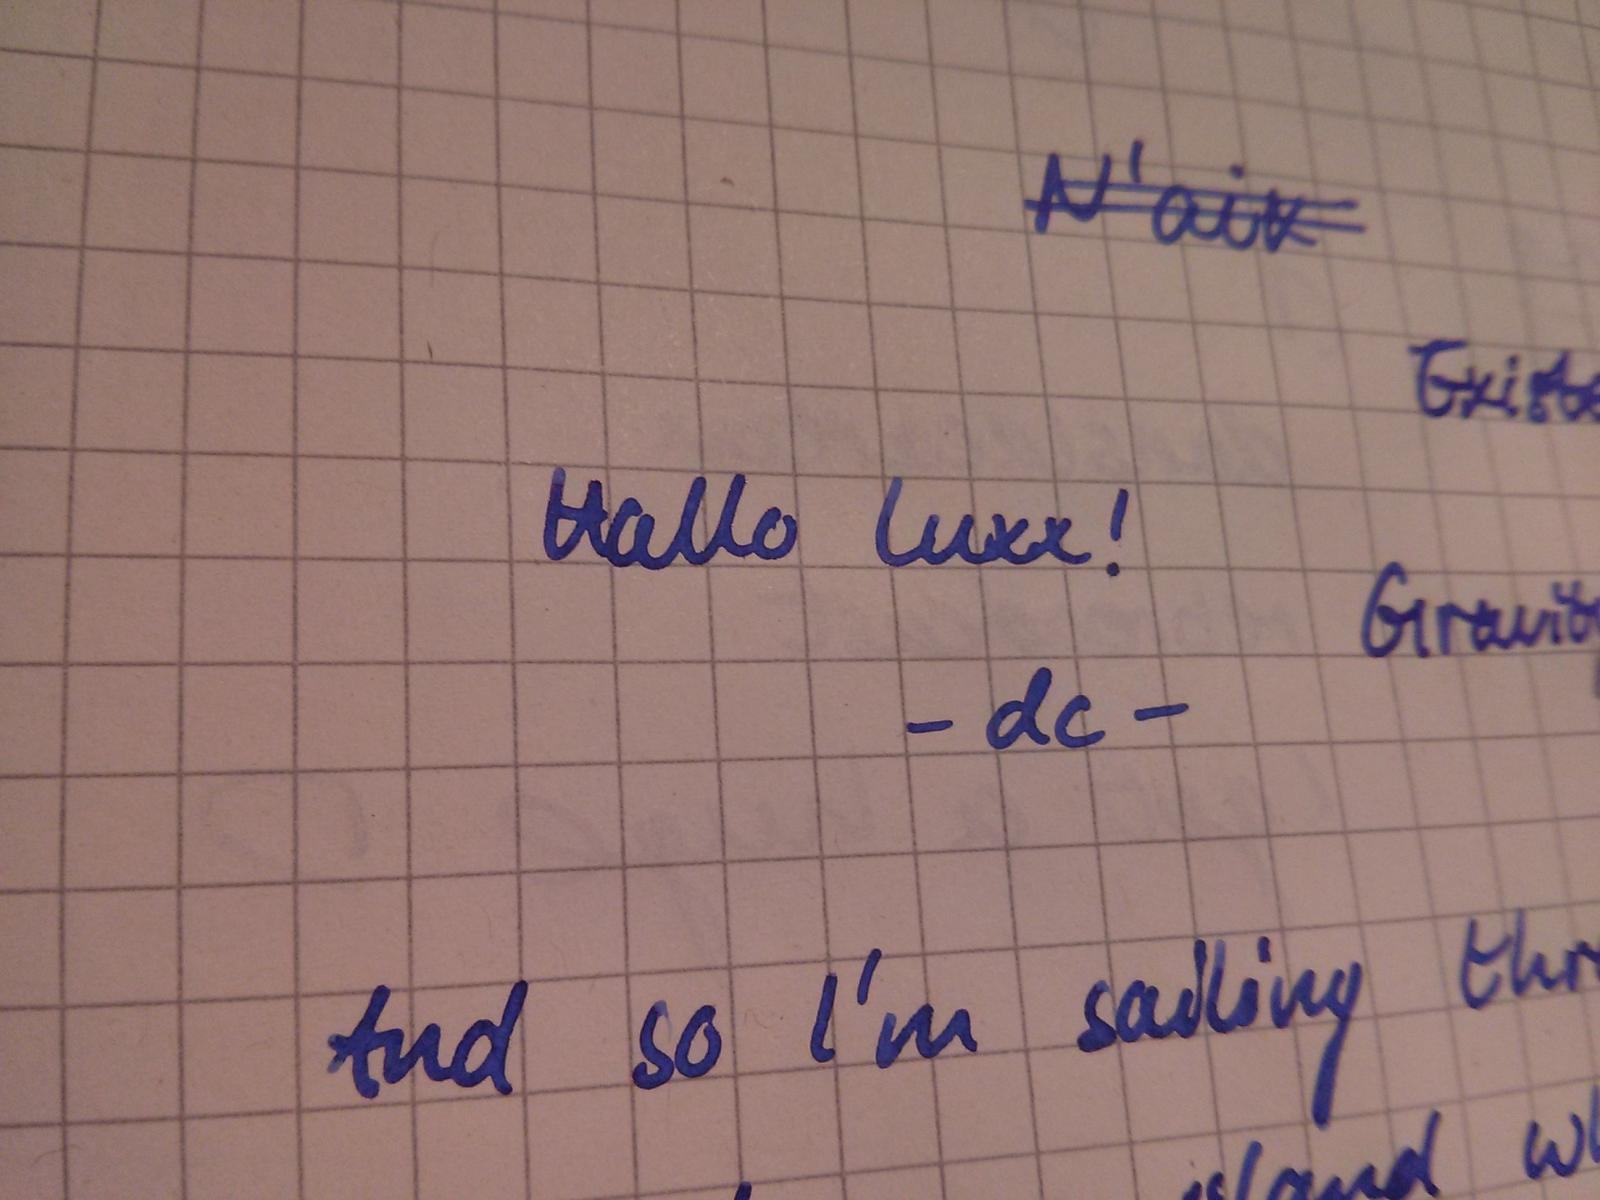 N'aix
Existe
Hallo luxx!
Gravity
- dc -
And so I'm sailing thr
island wh